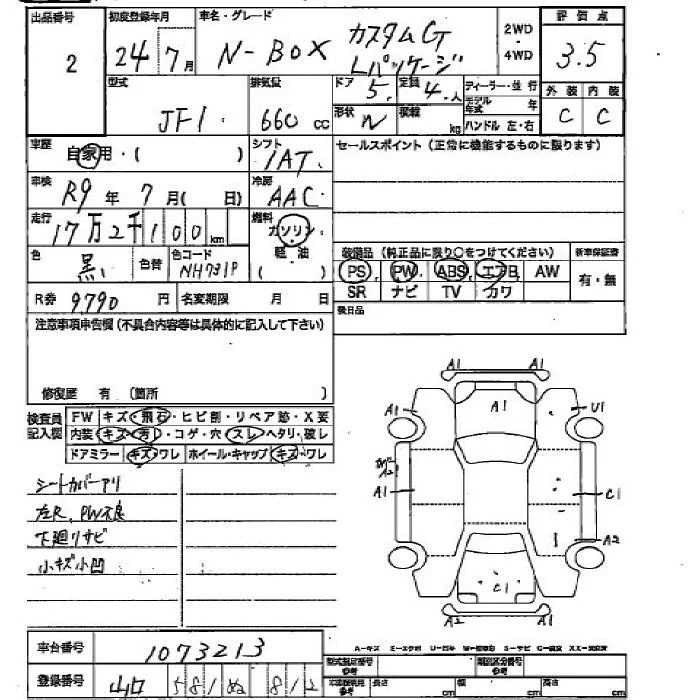 出品番号 初度登録年月 車名・グレード 2WD 4WD 評価点
2 24 7月 N-BOX カスタムG Lパッケージ 3.5
型式 排気量 ドア 定員 ディーラー・並行 外装 内装
JF1 660 cc 5 4人 形状 N 積載 kg モデル年式 年 ハンドル 左・右 C C
車歴 自家用・( ) シフト IAT セールスポイント(正常に機能するものに限ります)
車検 R9年 7月( 日) 冷房 AAC
走行 17万2千100km 燃料 ガソリン 軽・油 ( )
色 黒 色替 色コード NH731P
装備品(純正品に限り○をつけてください) 新車保証書
PS PW ABS エアB AW 有・無
SR ナビ TV カワ
R券 9790円 名変期限 月 日 後日品
注意事項申告欄(不具合内容等は具体的に記入して下さい)
修復歴 有 (箇所 )
検査員記入欄 FW キズ・飛石・ヒビ割・リペア跡・X要
内装 キズ・汚れ・コゲ・穴・スレ・ヘタリ・破レ
ドアミラー キズ・ワレ ホイール・キャップ キズ・ワレ
シートカバーアリ
左R.PW不良
下廻りサビ
小キズ小凹
A1 A1
A1 A1 U1
A2
A1 C1
A2
C1
A2 A1
車台番号 1073213
登録番号 山口 581 ぬ 812
型式指定番号 類別区分番号
参考 長さ cm 幅 cm 高さ cm